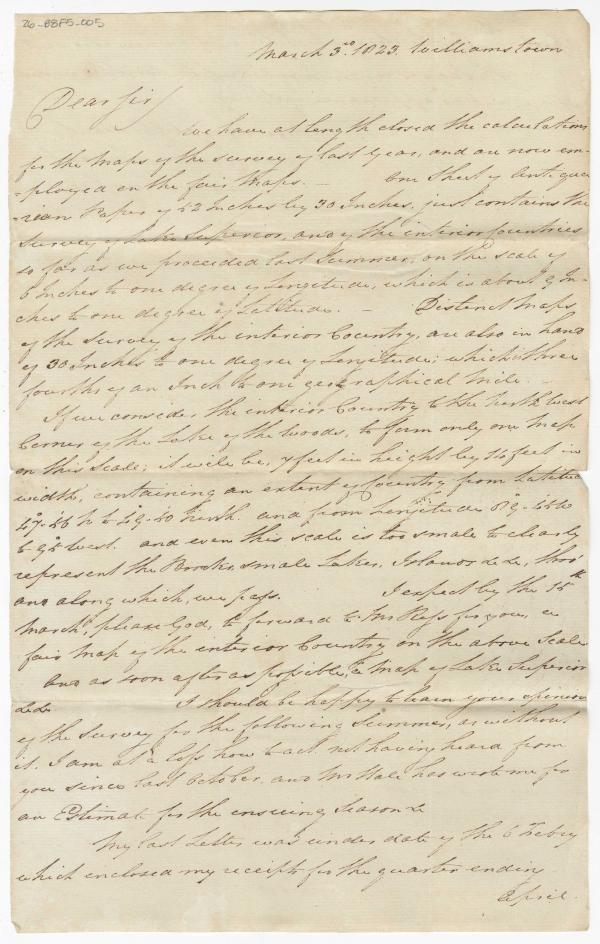 26-BBF5-005
March 3rd 1823. Williams town
Dear Sir/
We have at length closed the calculations
for the Maps of the survey of last year, and are now em-
-ployed on the fair Maps. — One Sheet of Anti qua
-rian Paper of 52 Inches by 30 Inches, just contains the
Survey of Lake Superior, and of the interior countries
so far as we proceeded last Summer, on the scale of
6 Inches to one degree of Longitude, which is about 9 In-
ches to one degree of Latitude. — Distinct Maps
of the survey of the interior Country, are also in hand
of 30 Inches to one degree of Longitude; which is three
fourths of an Inch to one geographical Mile. —
If we consider the interior Country to the North West
Corner of the Lake of the Woods, to form only one Map
on this Scale; it will be, 7 feet in height by 14 feet in
width, containing an extent of Country from Latitude
north. and from Longitude
west. and even this scale is too small to clearly
represent the Brooks, small Lakes, Islands &c &c, thro'
and along which, we pass. I expect by the 15th
March, please God, to forward to Mr Ross for you, a
fair Map of the interior Country on the above Scale
and as soon after as possible, a Map of Lake Superior
&c &c I should be happy to learn your opinion
of the survey for the following Summer, as without
it. I am at a loss how to act not having heard from
you since last October, and Mr Hale has wrote me for
an Estimate for the ensuing Season &c
My last Letter was under date of the 6 Febry
which enclosed my receipts for the quarter ending
April.